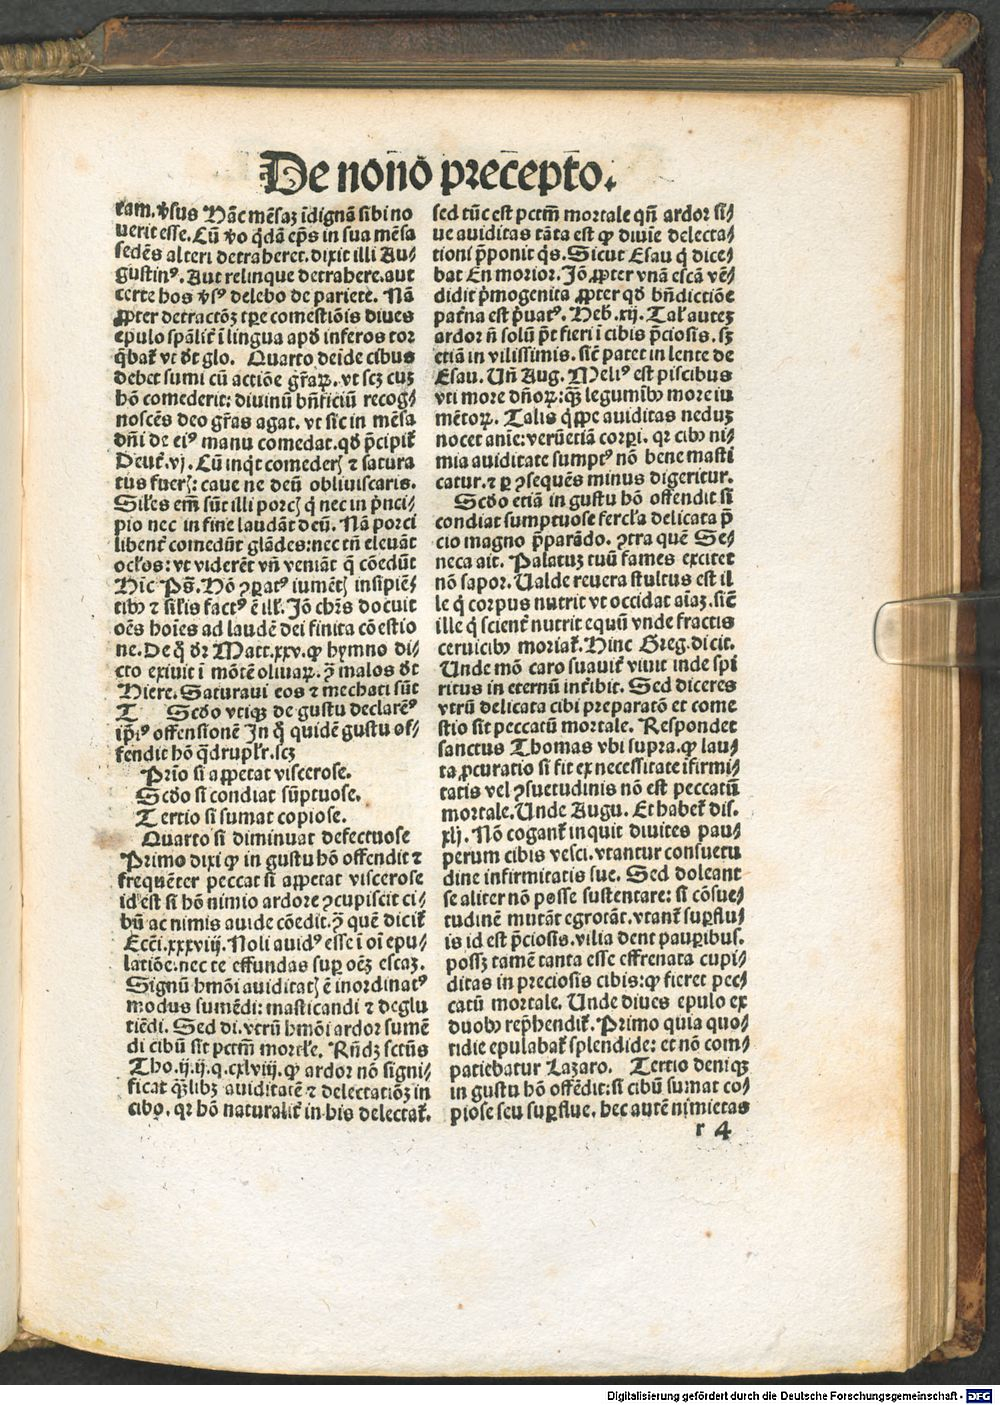 De nono̅ prece̅pto̅.
ram. v̾sus Ha̅c me̅saʒ i̅digna̅ sibi no
uerit esse. Cu̅ v̾o q̇da̅ ep̅s in sua me̅sa
sede̅s alteri detraheret. dixit illi Au⸗
gustinꝰ. Aut relinque detrahere. aut
certe hos v̾sꝰ delebo de pariete. Na̅
ꝓpter detracto̅ʒ tp̅e comestio̅is diues
epulo spa̅lit̾ i̅ lingua apd̾ inferos tor
q̅bat̾ vt dr̅ glo. Quarto dei̅de cibus
debet sumi cu̅ actio̅e gr̅aꝝ. vt scʒ cuʒ
ho̅ comederit: diuinu̅ bn̅ficiu̅ recog⸗
nosce̅s deo gr̅as agat. vt sic̅ in me̅sa
dn̅i de eiꝰ manu comedat. qd̾ p̅cipit̾
Deut̾. vj. Cu̅ inq̇t comederꝭ ⁊ satura
tus fuerꝭ: caue ne deu̅ obliuiscaris.
Sil̾es em̅ su̅t illi porcꝭ q̇ nec in ṗnci⸗
pio nec in fine lauda̅t deu̅. Na̅ porci
libent̾ comedu̅t gla̅des: nec tn̅ eleua̅t
ocl̾os: vt videre̅t vn̅ venia̅t q̅ co̅edu̅t
Hi̅c Ps̅. Ho̅ ꝯꝑatꝰ iume̅tꝭ insipie̅⸗
tibꝰ ⁊ sil̾is factꝰ e̅ ill̾. Jo̅ chr̅s docuit
oe̅s hoi̅es ad laude̅ dei finita co̅estio
ne. De q̊ dr̅ Matt. xxv. ꝙ hymno di⸗
cto exiuit i̅ mo̅te̅ oliuaꝝ. ꝯ̅ malos dr̅
Hiere. Saturaui eos ⁊ mechati su̅t
T Scd̾o vtiqʒ de gustu declare̅ꝰ
ip̅iꝰ offensione̅ In q̊ quide̅ gustu of⸗
fendit ho̅ q̇drupl̾r. scʒ
Pri̅o si appetat viscerose.
Scd̾o si condiat su̅ptuose.
Tertio si sumat copiose.
Quarto si diminuat defectuose
Primo dixi ꝙ in gustu ho̅ offendit ⁊
freque̅ter peccat si appetat viscerose
id est si ho̅ nimio ardore ꝯcupiscit ci⸗
bu̅ ac nimis auide co̅edit. ꝯ̅ que̅ dicit̾
Ecc̅i. xxxviij. Noli auidꝰ esse i̅ oi̅ epu⸗
latio̅e: nec te effundas suꝑ oe̅ʒ escaʒ.
Signu̅ hmo̅i auiditatꝭ e̅ inordinatꝰ
modus sume̅di: masticandi ⁊ deglu
tie̅di. Sed di. vtru̅ hmo̅i ardor sume̅
di cibu̅ sit pctm̅ mortl̾e. Rn̅dʒ sctu̅s
Tho. ij. ij. q. cxlviij. ꝙ ardor no̅ signi⸗
ficat q̅libʒ auiditate̅ ⁊ delectatio̅ʒ in
cibo. qꝛ ho̅ naturalit̾ in his delectat̾.
sed tu̅c est pctm̅ mortale qn̅ ardor si⸗
ue auiditas ta̅ta est ꝙ diui̅e delecta⸗
tioni p̅ponit q̇s. Sicut Esau q̇ dice⸗
bat En morior. Jo̅ ꝓpter vna̅ esca̅ ve̅⸗
didit ṗmogenita ꝓpter qd̾ bn̅dictio̅e
pat̾na est ṗuatꝰ. Heb̾. xij. Tal̾ auteʒ
ardor n̅ solu̅ pt̅ fieri i̅ cibis p̅ciosis. sʒ
etia̅ in vilissimis. sic̅ patet in lente de
Esau. Vn̅ Aug. Meliꝰ est piscibus
vti more dn̅oꝝ: q̅ʒ legumibꝰ more iu
me̅toꝝ. Talis q̇ppe auiditas neduʒ
nocet anie̅: veru̅etia̅ corpi̅. qꝛ cibꝰ ni⸗
mia auiditate sumptꝰ no̅ bene masti
catur. ⁊ ꝑ ꝯseque̅s minus digeritur.
Scd̾o etia̅ in gustu ho̅ offendit si
condiat sumptuose fercl̾a delicata p̅
cio magno p̅para̅do. ꝯtra que̅ Se⸗
neca ait. Palatuʒ tuu̅ fames excitet
no̅ sapor. Valde reuera stultus est il
le q̇ corpus nutrit vt occidat ai̅aʒ. sic̅
ille q̇ scient̾ nutrit equu̅ vnde fractis
ceruicibꝰ moriat̾. Hinc Greg. dicit.
Unde mo̅ caro suauit̾ viuit inde spi̅
ritus in eternu̅ int̾ibit. Sed diceres
vtru̅ delicata cibi preparato̅ et come
stio sit peccatu̅ mortale. Respondet
sanctus Thomas vbi supra. ꝙ lau⸗
ta ꝓcuratio si fit ex necessitate i̅firmi⸗
tatis vel ꝯsuetudinis no̅ est peccatu̅
mortale. Unde Augu. Et habet̾ dis.
xlj. No̅ cogant̾ inquit diuites pau⸗
perum cibis vesci. vtantur consuetu
dine infirmitatis sue. Sed doleant
se aliter no̅ posse sustentare: si co̅sue⸗
tudine̅ muta̅t egrota̅t. vtant̾ suꝑflu⸗
is id est p̅ciosis. vilia dent pauꝑibus.
possʒ tame̅ tanta esse effrenata cupi⸗
ditas in preciosis cibis: ꝙ fieret pec⸗
catu̅ mortale. Unde diues epulo ex
duobꝰ rep̅hendit̾. Primo quia quo⸗
tidie epulabat̾ splendide: et no̅ com⸗
patiebatur Lazaro. Tertio deniqʒ
in gustu ho̅ offe̅dit: si cibu̅ sumat co⸗
piose seu suꝑflue. hec aute̅ nimietas
r 4
Digitalisierung gefördert durch die Deutsche Forschungsgemeinschaft - DFG